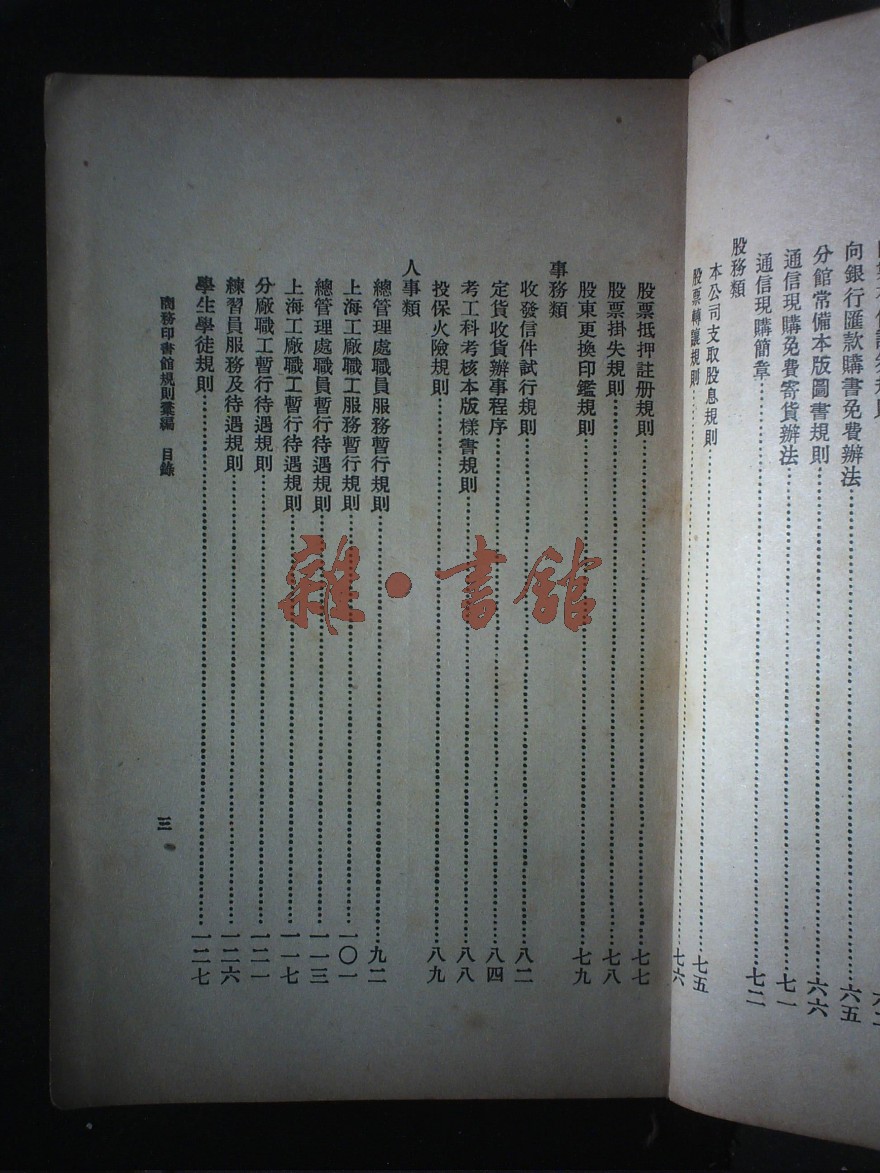 向銀行匯款購書免費辦法……六五
分館常備本版圖書規則……六六
通信現購免費寄貨辦法……七一
通信現購簡章……七二
股務類
本公司支取股息規則……七五
股票轉讓規則……七六
股票抵押註册規則……七七
股票掛失規則……七八
股東更換印鑑規則……七九
事務類
收發信件試行規則……八二
定貨收貨辦事程序……八四
考工科考核本版樣書規則……八八
投保火險規則……八九
人事類
總管理處職員服務暫行規則……九二
上海工廠職工服務暫行規則……一〇一
總管理處職員暫行待遇規則……一一三
上海工廠職工暫行待遇規則……一一七
分廠職工暫行待遇規則……一二一
練習員服務及待遇規則……一二六
學生學徒規則……一二七
商務印書館規則彙編 目錄
三
雜·書館